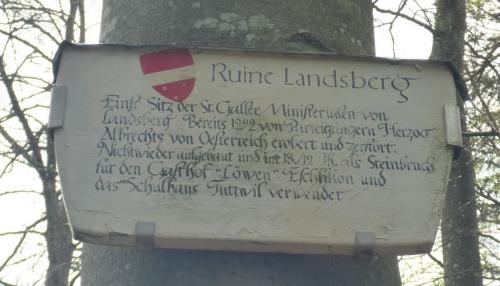 Ruine Landsberg
Einst Sitz der St. Galler Ministerialen von
Landsberg Bereits 1292 von Parteigängern Herzog
Albrechts von Oesterreich erobert und zerstört.
Nicht wieder aufgebaut und im 18./19. Jh. als Steinbruch
für den Gasthof "Löwen" Eschlikon und
das Schulhaus Tuttwil verwendet